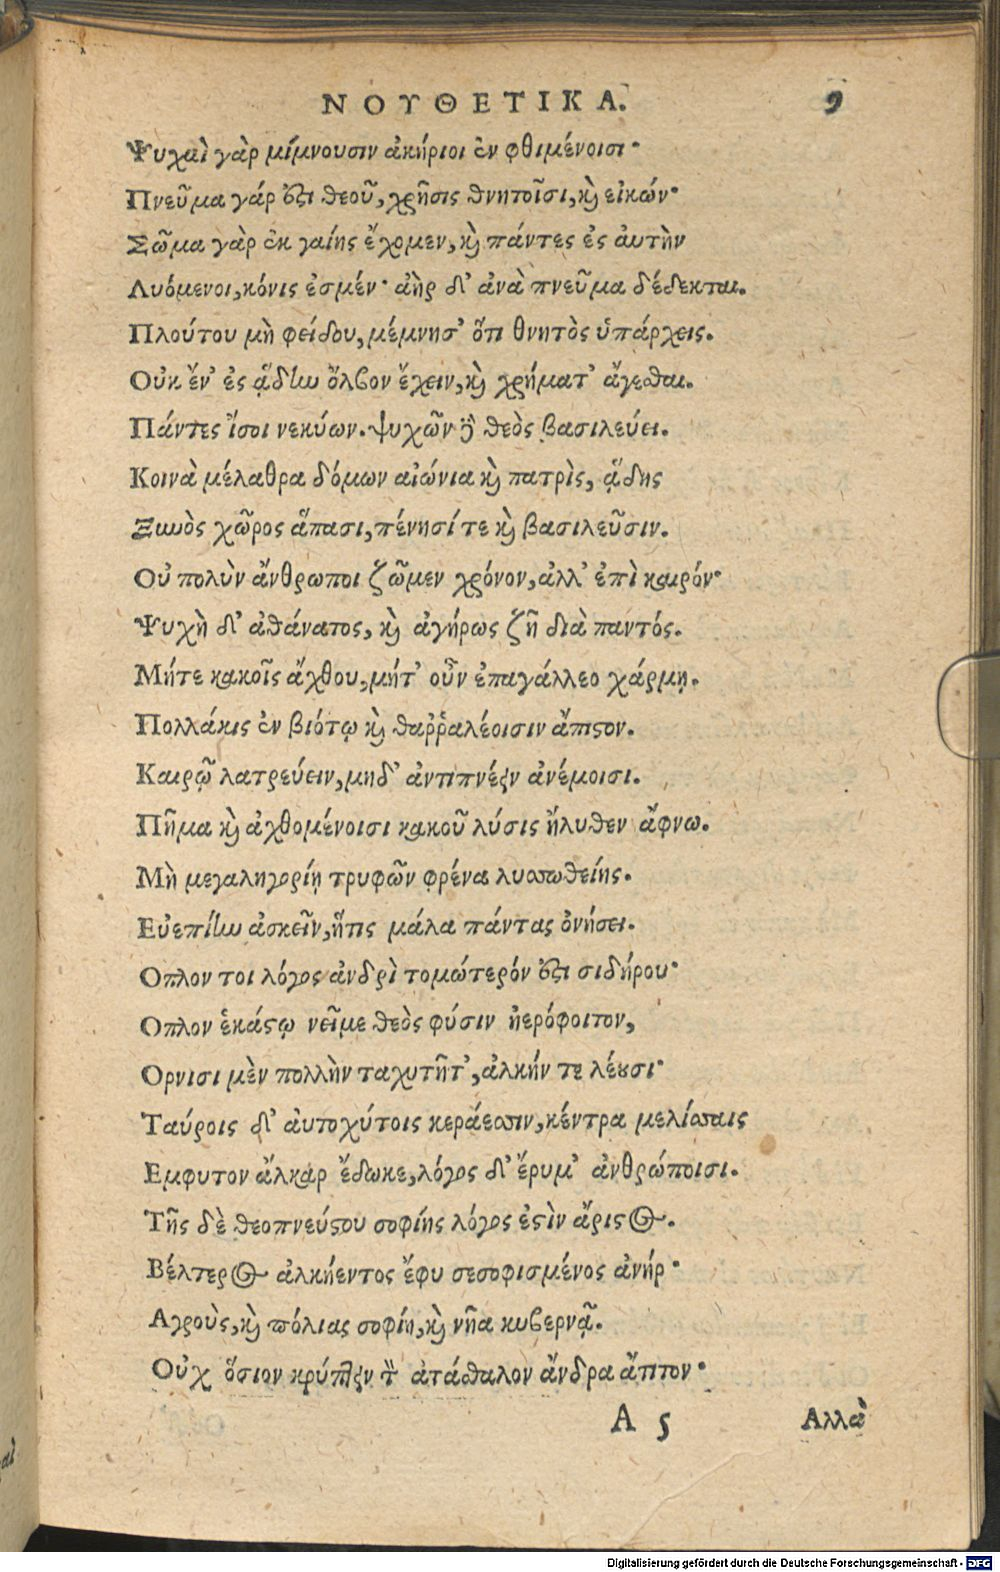 ΝΟΥΘΕΤΙΚΑ. 9
Ψυχαὶ γὰρ μίμνουσιν ἀκήριοι ἐν φθιμένοισι·
Πνεῦμα γάρ ἐστι θεοῦ, χρῆσις θνητοῖσι, καὶ εἰκών·
Σῶμα γὰρ ἐκ γαίης ἔχομεν, καὶ πάντες ἐς ἀυτὴν
Λυόμενοι, κόνις ἐσμέν· ἀὴρ δ᾽ ἀνὰ πνεῦμα δέδεκται.
Πλούτου μὴ φείδου, μέμνησ᾽ ὅτι θνητὸς ὑπάρχεις.
Οὐκ ἔν᾽ ἐς ᾅδην ὄλβον ἔχειν, καὶ χρήματ᾽ ἄγεσθαι.
Πάντες ἴσοι νεκύων. ψυχῶν δὲ θεὸς βασιλεύει.
Κοινὰ μέλαθρα δόμων αἰώνια καὶ πατρὶς, ᾅδης
Ξυνὸς χῶρος ἅπασι, πένησί τε καὶ βασιλεῦσιν.
Οὐ πολὺν ἄνθρωποι ζῶμεν χρόνον, ἀλλ᾽ ἐπὶ καιρόν·
Ψυχὴ δ᾽ ἀθάνατος, καὶ ἀγήρως ζῇ διὰ παντός.
Μήτε κακοῖς ἄχθου, μήτ᾽ οὖν ἐπαγάλλεο χάρμῃ.
Πολλάκις ἐν βιότῳ καὶ θαῤῥαλέοισιν ἄπιστον.
Καιρῷ λατρεύειν, μηδ᾽ ἀντιπνέειν ἀνέμοισι.
Πῆμα καὶ ἀχθομένοισι κακοῦ λύσις ἤλυθεν ἄφνω.
Μὴ μεγαληγορίῃ τρυφῶν φρένα λυσσωθείης.
Εὐεπίην ἀσκεῖν, ἥτις μάλα πάντας ὀνήσει.
Οπλον τοι λόγος ἀνδρὶ τομώτερόν ἐστι σιδήρου·
Οπλον ἑκάστῳ νεῖμε θεὸς φύσιν ἠερόφοιτον,
Ορνισι μὲν πολλὴν ταχυτῆτ᾽, ἀλκήν τε λέουσι·
Ταύροις δ᾽ ἀυτοχύτοις κεράεσσιν, κέντρα μελίσσαις
Εμφυτον ἄλκαρ ἔδωκε, λόγος δ᾽ ἔρυμ᾽ ἀνθρώποισι.
Τῆς δὲ θεοπνεύστου σοφίης λόγος ἐστὶν ἄριστος.
Βέλτερος ἀλκήεντος ἔφυ σεσοφισμένος ἀνήρ·
Αγροὺς, καὶ πόλιας σοφίη, καὶ νῆα κυβερνᾷ.
Οὐχ ὅσιον κρύπτειν τὸν ἀτάσθαλον ἄνδρα ἄτιτον·
Α 5 Αλλὰ
Digitalisierung gefördert durch die Deutsche Forschungsgemeinschaft - DFG